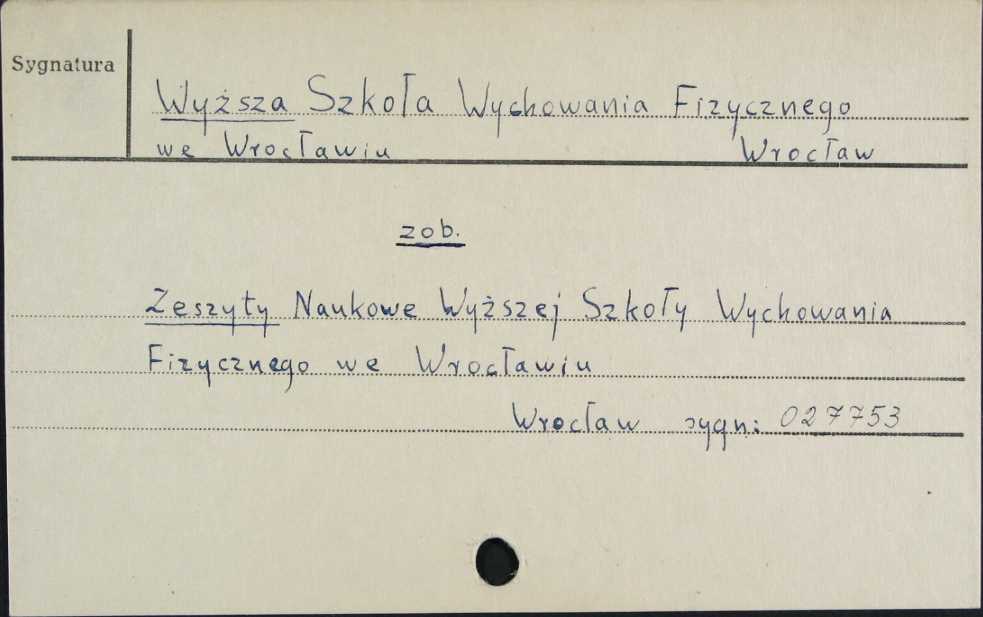 Sygnatura
Wyższa Szkoła Wychowania Fizycznego
we Wrocławiu Wrocław
zob.
Zeszyty Naukowe Wyższej Szkoły Wychowania
Fizycznego we Wrocławiu
Wrocław sygn: 027753